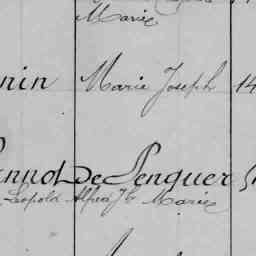 Marie
nin Marie Joseph 14
nnot De Penquer
Léopold Alfred Jh Marie